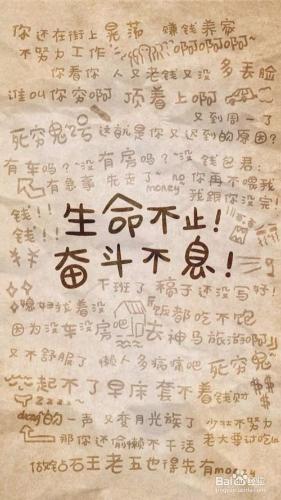 你还在街上晃荡 赚钱养家
不努力工作 啊啊啊啊~
你看你 人又老钱又没 多丢脸
谁叫你穷啊 顶着上啊!
又到周一了
死穷鬼2号 这就是你又迟到的原因?
有车吗?"没有房吗?"没 钱包君:
有急事 先走了~ no money 你再不喂我
我跟你没完!
钱!!
钱!!
生命不止!
奋斗不息!
不班了 稿子还没写好!
媳妇找着没 饭都吃不饱
因为没车没房吧 去神马旅游啊!
又不舒服了 懒人多病痛吧 死穷鬼
起不了早床 套不着钱财
zzzz~ $$$
的一声 又变月光族了 少壮不努力
那你还偷懒不干活 老大要讨吃
做钻石王老五也得先有money
Baidu经验